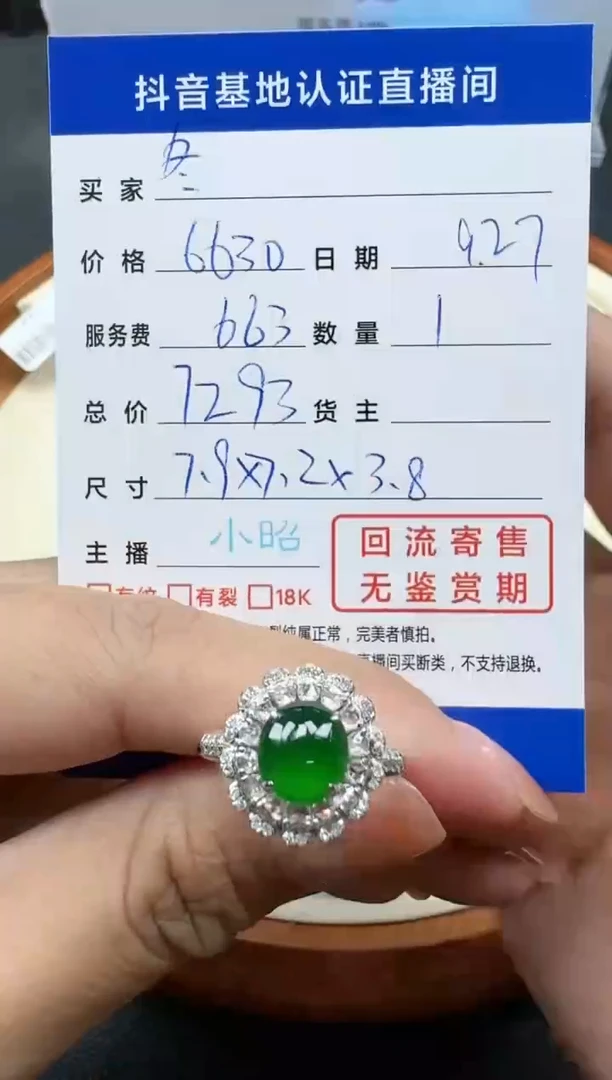 抖音基地认证直播间
买家 冬
价格 6630 日期 9.27
服务费 663 数量 1
总价 7293 货主
尺寸 7.9x7.2x3.8
主播 小昭
回流寄售
无鉴赏期
有纹 有裂 18K
裂纹属正常，完美者慎拍。
直播间买断类，不支持退换。